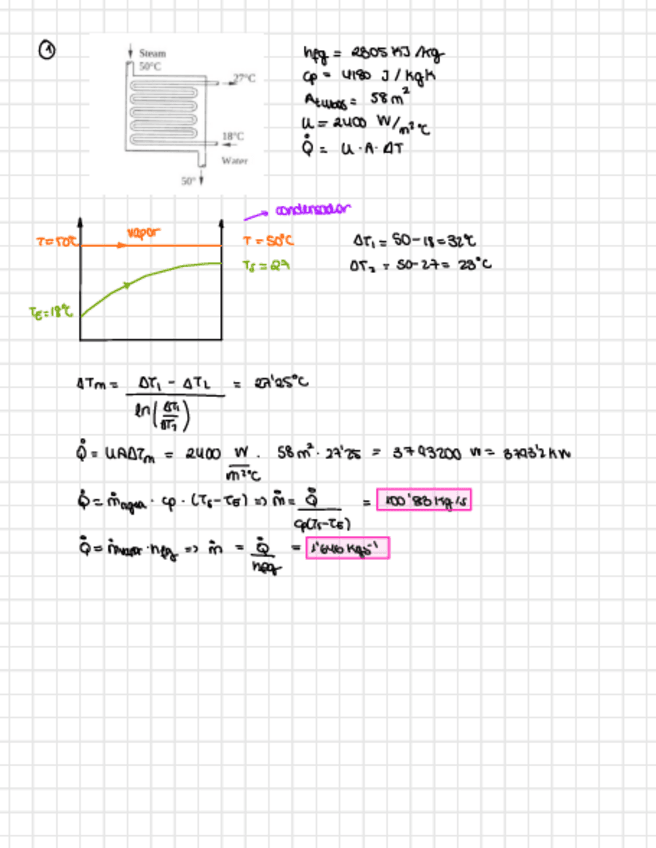 ①
Steam
50°C
27°C
18°C
Water
50°
hfg = 2305 KJ/kg
cp = 4180 J/kgK
Atubos = 58 m²
U = 2400 W/m²°C
Q̇ = U·A·ΔT
condensador
T=50°C
vapor
T=50°C
Ts=27
TE=18°C
ΔT₁ = 50-18=32°C
ΔT₂ = 50-27= 23°C
ΔTm = (ΔT₁ - ΔT₂) / ln(ΔT₁/ΔT₂) = 27'25°C
Q̇ = UAΔTm = 2400 W/m²°C · 58m² · 27'25 = 3793200 W = 3793'2 KW
Q̇ = ṁagua · cp · (Ts-TE) => ṁ = Q̇ / cp(Ts-TE) = 100'83 kg/s
Q̇ = ṁvapor·hfg => ṁ = Q̇ / hfg = 1'646 kgs⁻¹